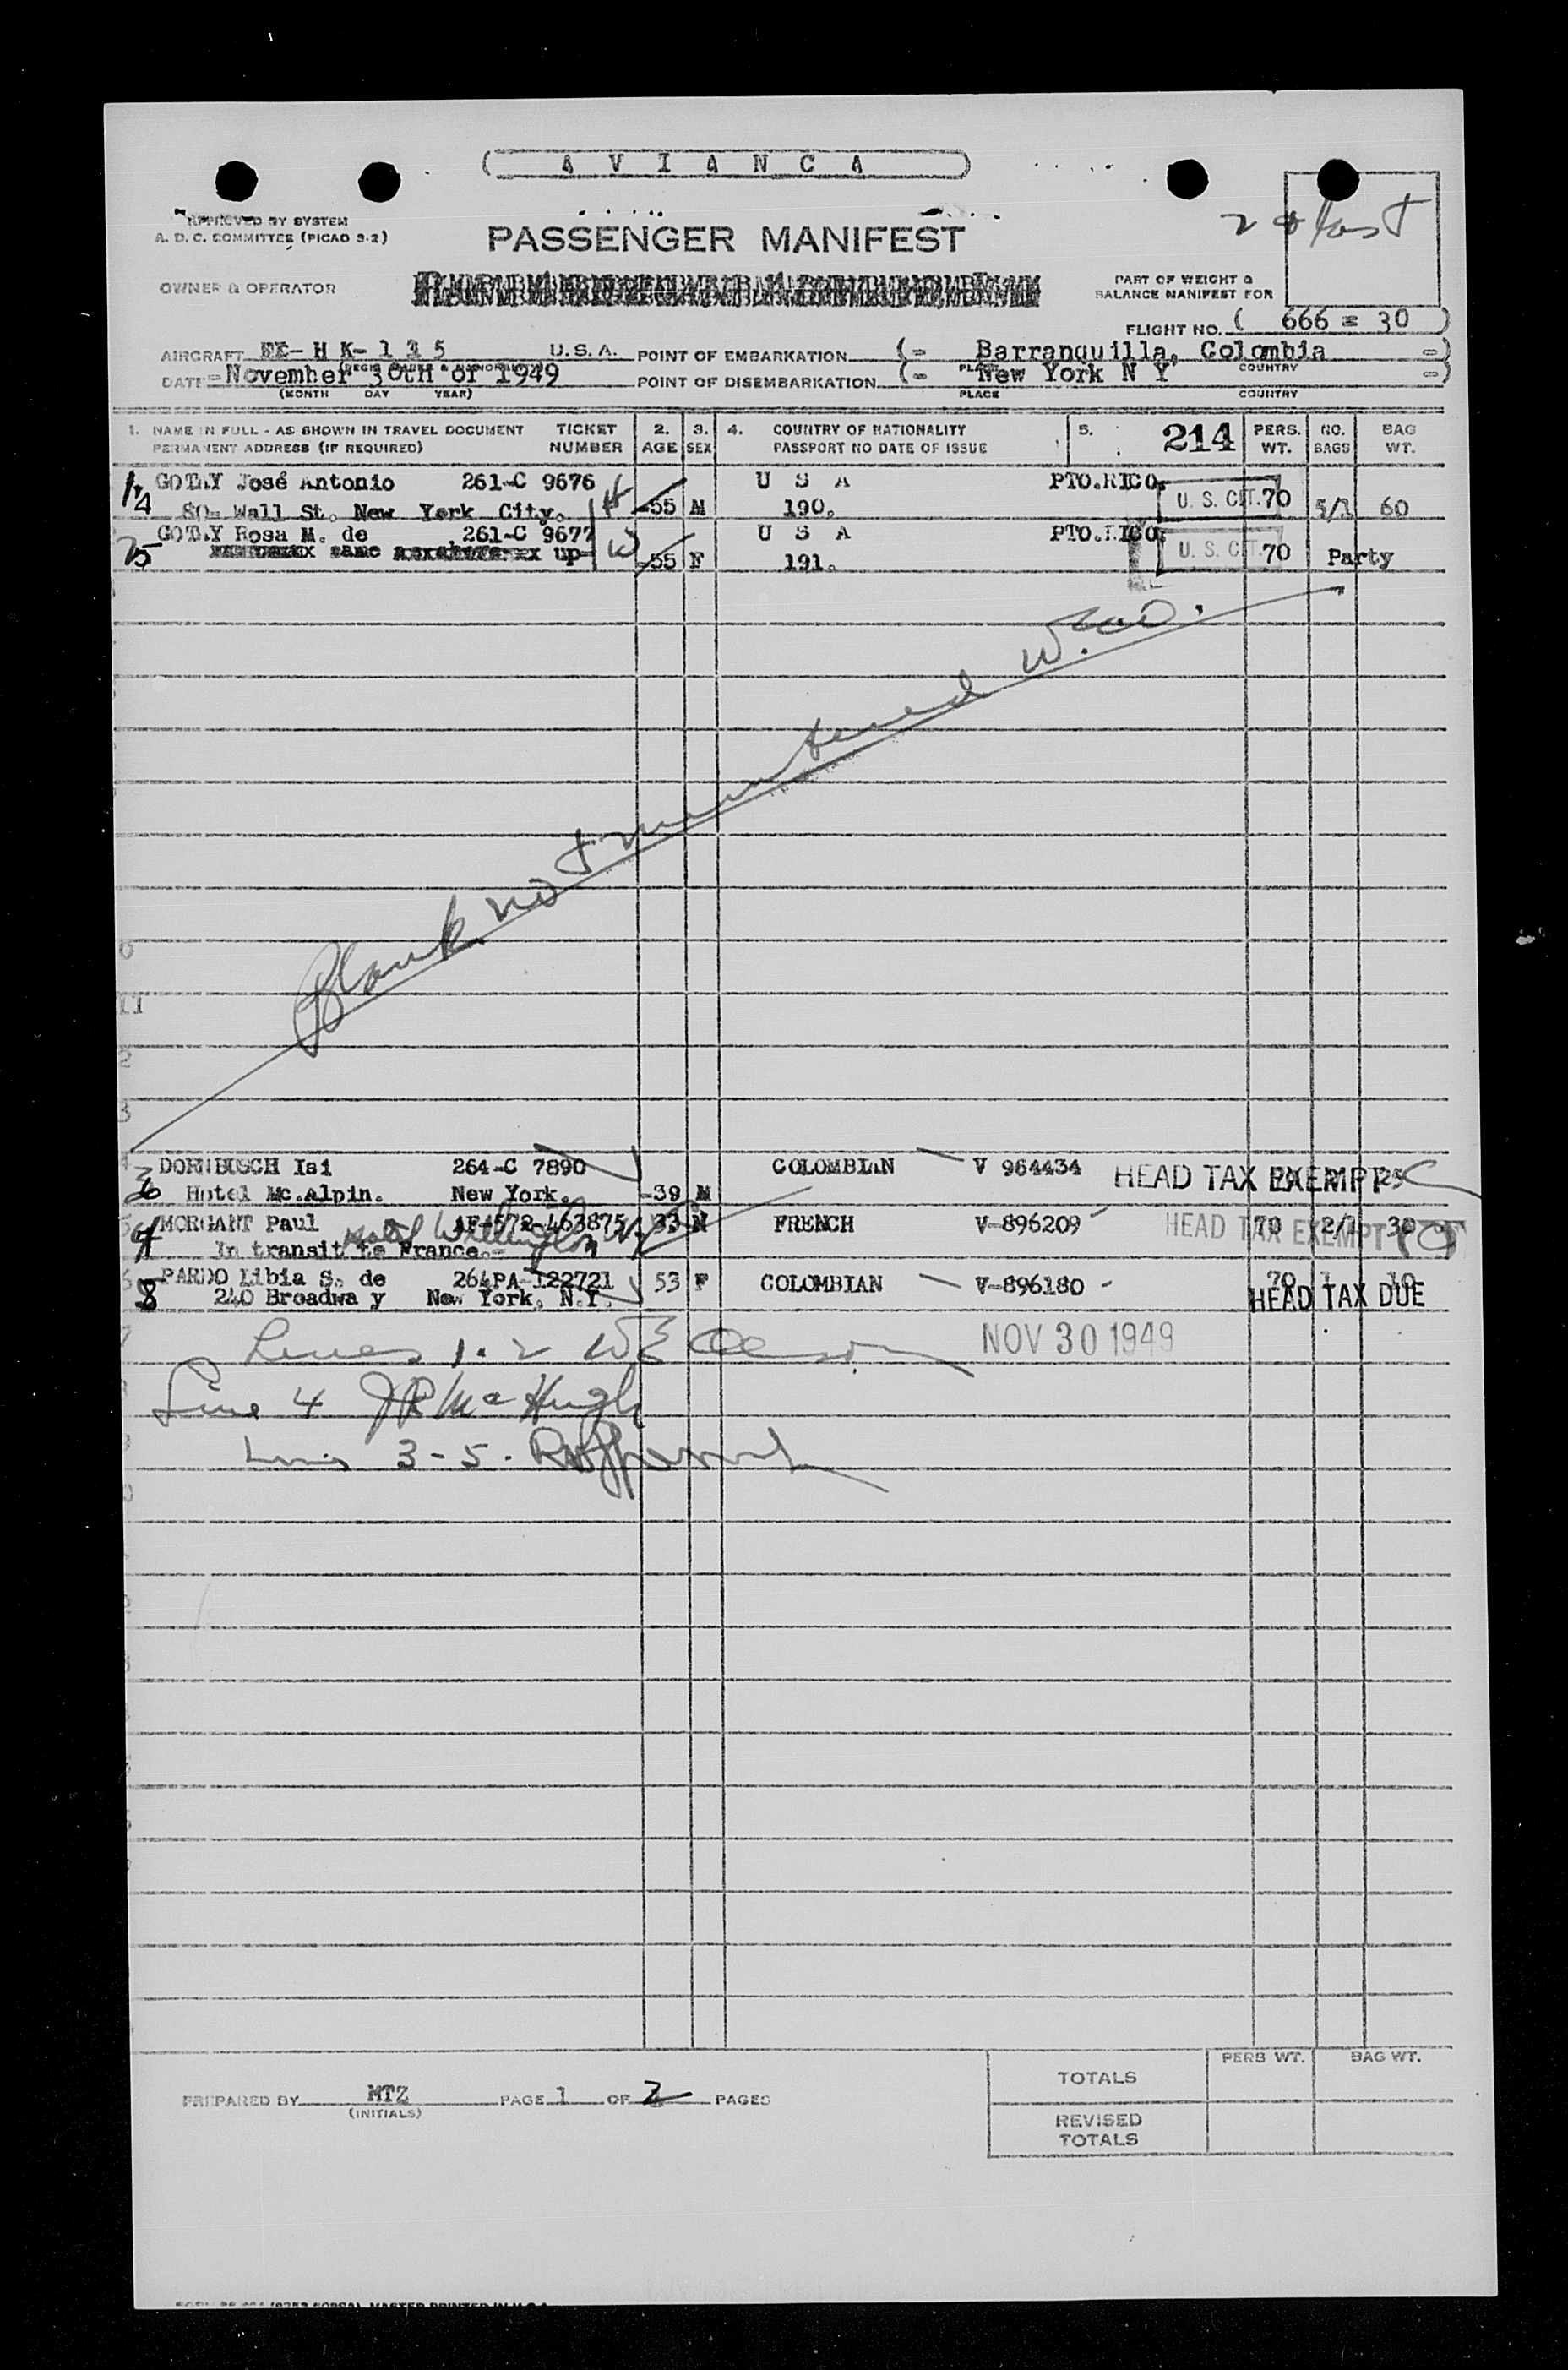 ( A V I A N C A )
APPROVED BY SYSTEM
A. D. C. COMMITTEE (PICAO 9-2)
PASSENGER MANIFEST
2 & last
OWNER & OPERATOR
PART OF WEIGHT &
BALANCE MANIFEST FOR
FLIGHT NO. ( 666 = 30 )
AIRCRAFT H K- 1 3 5 U. S. A. POINT OF EMBARKATION (- Barranquilla, Colombia -)
DATE -November 30th of 1949 POINT OF DISEMBARKATION (- New York N Y -)
PLACE COUNTRY
(MONTH DAY YEAR) PLACE COUNTRY
1. NAME IN FULL - AS SHOWN IN TRAVEL DOCUMENT TICKET 2. 3. 4. COUNTRY OF NATIONALITY 5. 214 PERS. NO. BAG
PERMANENT ADDRESS (IF REQUIRED) NUMBER AGE SEX PASSPORT NO DATE OF ISSUE WT. BAGS WT.
GOTAY José Antonio 261-C 9676 H U S A PTO.RICO.
80- Wall St. New York City. -55 M 190. U. S. CIT. 70 5/1 60
GOTAY Rosa M. de 261-C 9677 W U S A PTO.RICO.
same up- -55 F 191. U. S. CIT. 70 Party
Blank not mentioned
11
2
3
DORNBUSCH Isi 264-C 7890 COLOMBIAN V 964434 HEAD TAX EXEMPT
Hotel Mc.Alpin. New York. -39 M
MORGANT Paul AF-572-463875 33 M FRENCH V-896209 HEAD TAX EXEMPT 70 2/1 30
In transit to France.- Hotel Wellington
PARDO Libia S. de 264PA-122721 53 F COLOMBIAN V-896180 - 70 1 10
240 Broadwa y New York. N.Y. HEAD TAX DUE
Lines 1. 2 NOV 30 1949
Line 4 JR McHugh
Lines 3-5.
PREPARED BY MTZ PAGE 1 OF 2 PAGES
(INITIALS)
PERS WT. BAG WT.
TOTALS
REVISED
TOTALS